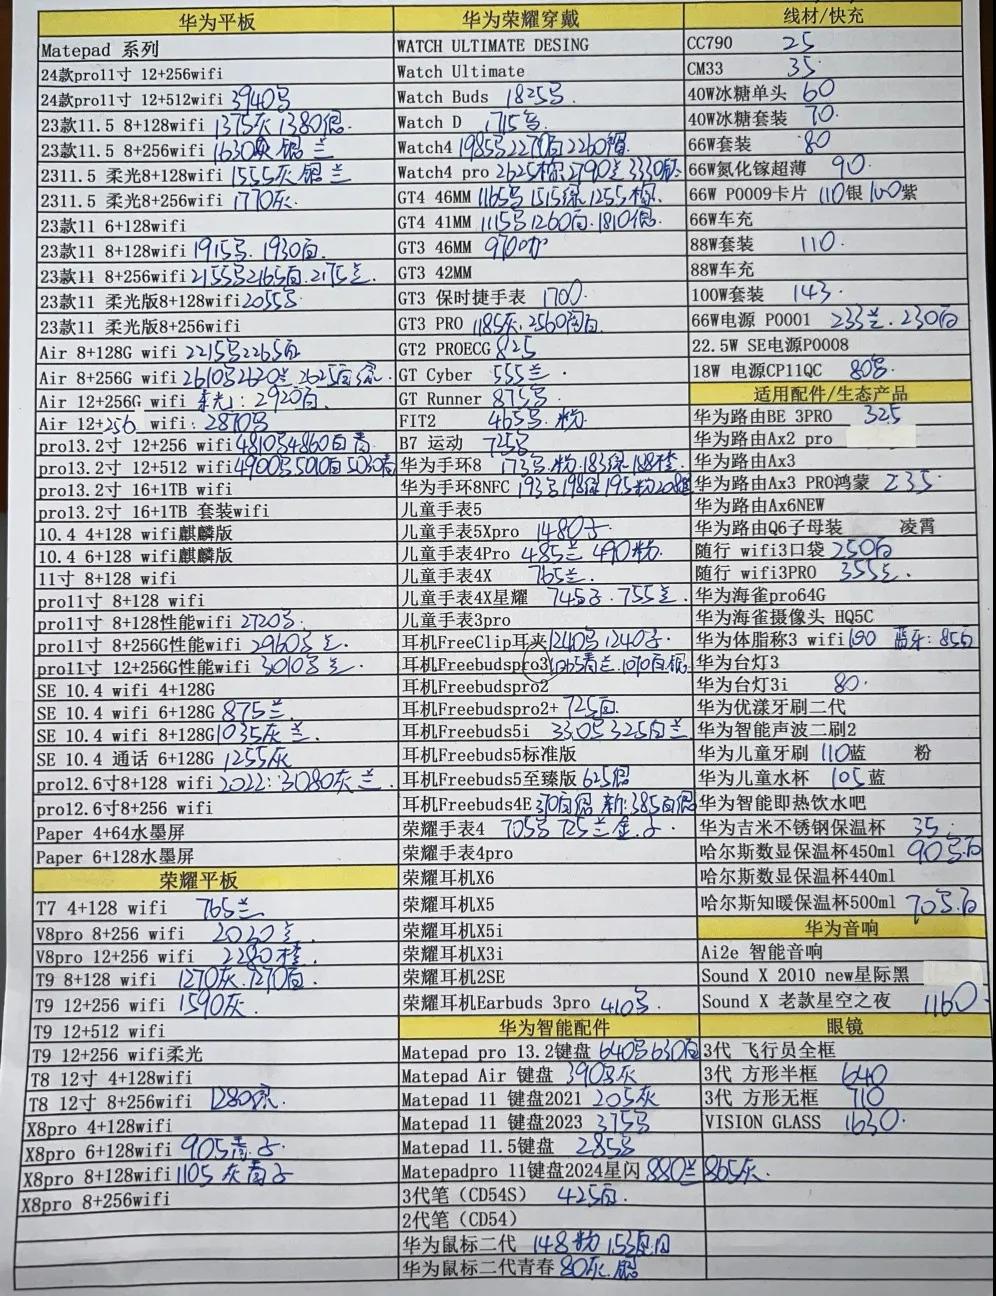 华为平板
Matepad 系列
24款pro11寸 12+256wifi
24款pro11寸 12+512wifi 3940号
23款11.5 8+128wifi 1375灰 1380银
23款11.5 8+256wifi 1630灰 银 兰
2311.5 柔光8+128wifi 1555灰 银 兰
2311.5 柔光8+256wifi 1770灰.
23款11 6+128wifi
23款11 8+128wifi 1915号. 1930白
23款11 8+256wifi 2155号2165白.2175兰.
23款11 柔光版8+128wifi 2055号
23款11 柔光版8+256wifi
Air 8+128G wifi 2215号2265白
Air 8+256G wifi 2610号2620兰 2625白
Air 12+256G wifi 柔光: 2920白.
Air 12+256 wifi: 2870号
pro13.2寸 12+256 wifi 4810号4860白青
pro13.2寸 12+512 wifi 4900号
pro13.2寸 16+1TB wifi
pro13.2寸 16+1TB 套装wifi
10.4 4+128 wifi麒麟版
10.4 6+128 wifi麒麟版
11寸 8+128 wifi
pro11寸 8+128 wifi
pro11寸 8+128性能wifi 2720号.
pro11寸 8+256G性能wifi 2960号 兰.
pro11寸 12+256G性能wifi 3010号兰.
SE 10.4 wifi 4+128G
SE 10.4 wifi 6+128G 875兰.
SE 10.4 wifi 8+128G 1035灰兰.
SE 10.4 通话 6+128G 1255灰
pro12.6寸8+128 wifi 2022: 3080灰 兰.
pro12.6寸8+256 wifi
Paper 4+64水墨屏
Paper 6+128水墨屏
荣耀平板
T7 4+128 wifi 765兰
V8pro 8+256 wifi 2020兰.
V8pro 12+256 wifi 2280
T9 8+128 wifi 1270灰.1270白.
T9 12+256 wifi 1590灰.
T9 12+512 wifi
T9 12+256 wifi柔光
T8 12寸 4+128wifi
T8 12寸 8+256wifi 1280
X8pro 4+128wifi
X8pro 6+128wifi 905青子.
X8pro 8+128wifi 1105灰青子
X8pro 8+256wifi
华为荣耀穿戴
WATCH ULTIMATE DESING
Watch Ultimate
Watch Buds 1825号.
Watch D 1715号.
Watch4 1985号2270白2260
Watch4 pro 2625棕2790兰3330钛
GT4 46MM 1165号1515绿1255棕.
GT4 41MM 1115号1260白.1810银.
GT3 46MM 970
GT3 42MM
GT3 保时捷手表 1700.
GT3 PRO 1185灰. 2560
GT2 PROECG 825
GT Cyber 555兰.
GT Runner 875号.
FIT2 465号. 粉.
B7 运动 725号
华为手环8 173号.粉.183绿.188橙.
华为手环8NFC 193号198绿195粉208橙
儿童手表5
儿童手表5Xpro 1480子.
儿童手表4Pro 485兰 490粉.
儿童手表4X 765兰.
儿童手表4X星耀 745子. 755兰.
儿童手表3pro
耳机FreeClip耳夹1240号 1240子.
耳机Freebudspro3 1065青兰.1070白银.
耳机Freebudspro2
耳机Freebudspro2+ 725白.
耳机Freebuds5i 330号325白兰
耳机Freebuds5标准版
耳机Freebuds5至臻版 625银
耳机Freebuds4E 370白银 新:385白银
荣耀手表4 705号 725兰金.子.
荣耀手表4pro
荣耀耳机X6
荣耀耳机X5
荣耀耳机X5i
荣耀耳机X3i
荣耀耳机2SE
荣耀耳机Earbuds 3pro 410号.
华为智能配件
Matepad pro 13.2键盘 640号630白
Matepad Air 键盘 390号灰
Matepad 11 键盘2021 205灰
Matepad 11 键盘2023 375号
Matepad 11.5键盘 285号
Matepadpro 11键盘2024星闪 880兰 865灰.
3代笔（CD54S） 425白.
2代笔（CD54）
华为鼠标二代 148粉 153
华为鼠标二代青春 80灰.银
线材/快充
CC790 25
CM33 35.
40W冰糖单头 60
40W冰糖套装 70.
66W套装 80
66W氮化镓超薄 90.
66W P0009卡片 110银 100紫
66W车充
88W套装 110.
88W车充
100W套装 143.
66W电源 P0001 233兰.230白
22.5W SE电源P0008
18W 电源CP11QC 80号.
适用配件/生态产品
华为路由BE 3PRO 325
华为路由Ax2 pro
华为路由Ax3
华为路由Ax3 PRO鸿蒙 235.
华为路由Ax6NEW
华为路由Q6子母装 凌霄
随行 wifi3口袋 250白
随行 wifi3PRO 355兰.
华为海雀pro64G
华为海雀摄像头 HQ5C
华为体脂称3 wifi 100 蓝牙: 85白
华为台灯3
华为台灯3i 80.
华为优漾牙刷二代
华为智能声波二刷2
华为儿童牙刷 110蓝 粉
华为儿童水杯 105蓝
华为智能即热饮水吧
华为吉米不锈钢保温杯 35.
哈尔斯数显保温杯450ml 90号.白
哈尔斯数显保温杯440ml
哈尔斯知暖保温杯500ml 70号.白
华为音响
Ai2e 智能音响
Sound X 2010 new星际黑
Sound X 老款星空之夜 1160.
眼镜
3代 飞行员全框
3代 方形半框 640
3代 方形无框 710
VISION GLASS 1630.